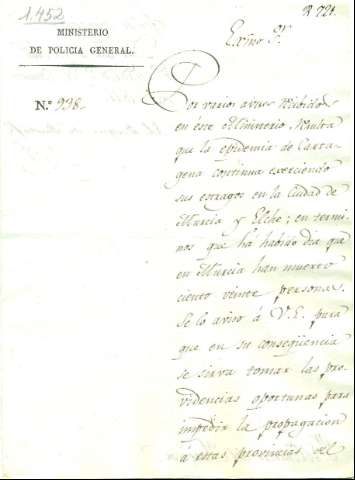 1.452
R 221.
MINISTERIO
DE POLICIA GENERAL.
N.º 938.
Exmo Sr.
Por varios avisos recibidos
en este Ministerio resulta
que la epidemia de Carta-
gena continua exerciendo
sus estragos en la ciudad de
Murcia y Elche; en termi-
nos que há habido dia que
en Murcia han muerto
ciento veinte personas.
Se lo aviso á V.E. para
que en su conseqüencia
se sirva tomar las pro-
videncias oportunas para
impedir la propagacion
á estas provincias del